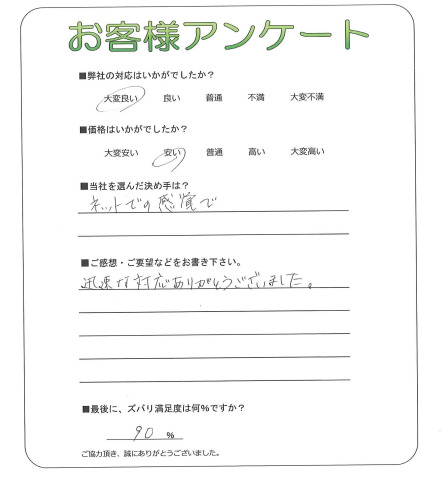 お客様アンケート
■弊社の対応はいかがでしたか？
大変良い 良い 普通 不満 大変不満
■価格はいかがでしたか？
大変安い 安い 普通 高い 大変高い
■当社を選んだ決め手は？
ネットでの感覚で
■ご感想・ご要望などをお書き下さい。
迅速な対応ありがとうございました。
■最後に、ズバリ満足度は何%ですか？
90 %
ご協力頂き、誠にありがとうございました。